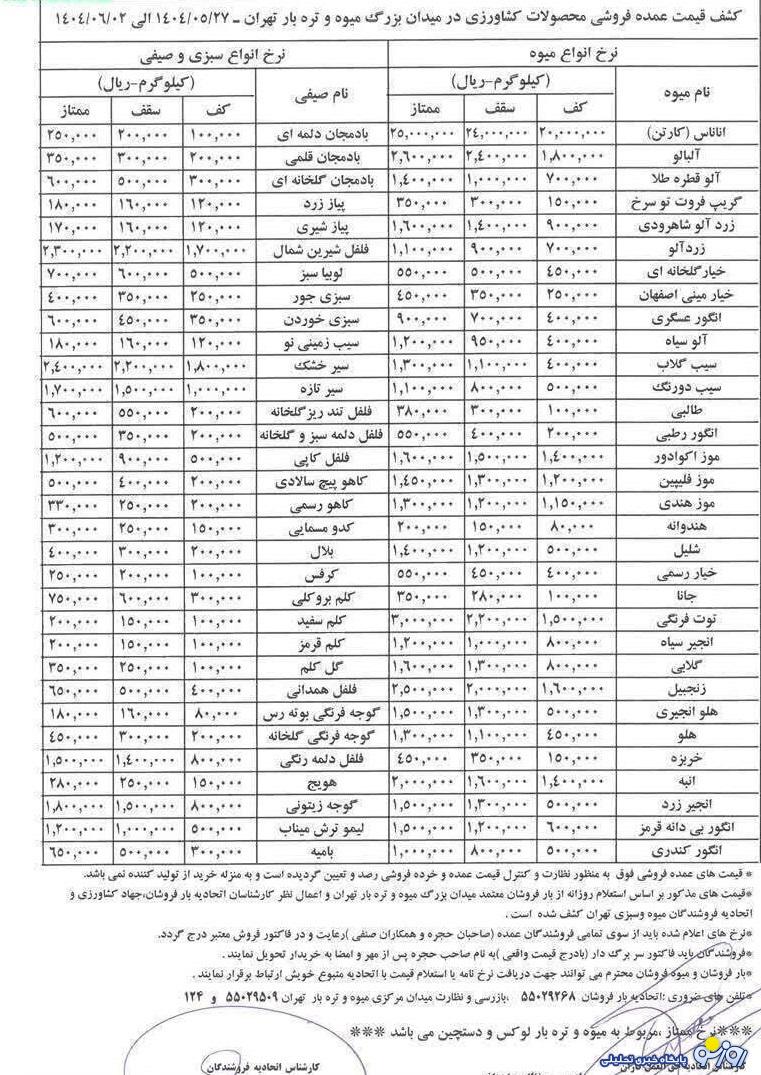 کشف قیمت عمده فروشی محصولات کشاورزی در میدان بزرگ میوه و تره بار تهران ـ ۱۴۰۴/۰۵/۲۷ الی ۱۴۰۴/۰۶/۰۲
نرخ انواع میوه نرخ انواع سبزی و صیفی
نام میوه (کیلوگرم-ریال) نام صیفی (کیلوگرم-ریال)
کف سقف ممتاز کف سقف ممتاز
اناناس (کارتن) ۲۰,۰۰۰,۰۰۰ ۲۴,۰۰۰,۰۰۰ ۲۵,۰۰۰,۰۰۰ بادمجان دلمه ای ۱۰۰,۰۰۰ ۲۰۰,۰۰۰ ۲۵۰,۰۰۰
آلبالو ۱,۸۰۰,۰۰۰ ۲,۴۰۰,۰۰۰ ۲,۶۰۰,۰۰۰ بادمجان قلمی ۲۰۰,۰۰۰ ۳۰۰,۰۰۰ ۳۵۰,۰۰۰
آلو قطره طلا ۷۰۰,۰۰۰ ۱,۰۰۰,۰۰۰ ۱,۴۰۰,۰۰۰ بادمجان گلخانه ای ۳۰۰,۰۰۰ ۵۰۰,۰۰۰ ۶۰۰,۰۰۰
گریپ فروت تو سرخ ۱۵۰,۰۰۰ ۳۰۰,۰۰۰ ۳۵۰,۰۰۰ پیاز زرد ۱۲۰,۰۰۰ ۱۶۰,۰۰۰ ۱۸۰,۰۰۰
زرد آلو شاهرودی ۹۰۰,۰۰۰ ۱,۴۰۰,۰۰۰ ۱,۶۰۰,۰۰۰ پیاز شیری ۱۲۰,۰۰۰ ۱۶۰,۰۰۰ ۱۷۰,۰۰۰
زردآلو ۷۰۰,۰۰۰ ۹۰۰,۰۰۰ ۱,۱۰۰,۰۰۰ فلفل شیرین شمال ۱,۷۰۰,۰۰۰ ۲,۲۰۰,۰۰۰ ۲,۳۰۰,۰۰۰
خیارگلخانه ای ۴۵۰,۰۰۰ ۵۰۰,۰۰۰ ۵۵۰,۰۰۰ لوبیا سبز ۵۰۰,۰۰۰ ۶۰۰,۰۰۰ ۷۰۰,۰۰۰
خیار مینی اصفهان ۲۵۰,۰۰۰ ۳۵۰,۰۰۰ ۴۵۰,۰۰۰ سبزی جور ۲۵۰,۰۰۰ ۳۵۰,۰۰۰ ۴۰۰,۰۰۰
انگور عسگری ۴۰۰,۰۰۰ ۷۰۰,۰۰۰ ۹۰۰,۰۰۰ سبزی خوردن ۳۵۰,۰۰۰ ۴۵۰,۰۰۰ ۶۰۰,۰۰۰
آلو سیاه ۴۰۰,۰۰۰ ۹۵۰,۰۰۰ ۱,۲۰۰,۰۰۰ سیب زمینی نو ۱۲۰,۰۰۰ ۱۶۰,۰۰۰ ۱۸۰,۰۰۰
سیب گلاب ۴۰۰,۰۰۰ ۱,۱۰۰,۰۰۰ ۱,۳۰۰,۰۰۰ سیر خشک ۱,۸۰۰,۰۰۰ ۲,۲۰۰,۰۰۰ ۲,۴۰۰,۰۰۰
سیب دورنگ ۵۰۰,۰۰۰ ۸۰۰,۰۰۰ ۱,۱۰۰,۰۰۰ سیر تازه ۱,۰۰۰,۰۰۰ ۱,۵۰۰,۰۰۰ ۱,۷۰۰,۰۰۰
طالبی ۱۰۰,۰۰۰ ۳۰۰,۰۰۰ ۳۸۰,۰۰۰ فلفل تند ریزگلخانه ۲۰۰,۰۰۰ ۵۵۰,۰۰۰ ۶۰۰,۰۰۰
انگور رطبی ۲۰۰,۰۰۰ ۴۰۰,۰۰۰ ۵۵۰,۰۰۰ فلفل دلمه سبز و گلخانه ۲۰۰,۰۰۰ ۳۵۰,۰۰۰ ۵۰۰,۰۰۰
موز اکوادور ۱,۴۰۰,۰۰۰ ۱,۵۰۰,۰۰۰ ۱,۶۰۰,۰۰۰ فلفل کاپی ۵۰۰,۰۰۰ ۹۰۰,۰۰۰ ۱,۲۰۰,۰۰۰
موز فلیپین ۱,۲۰۰,۰۰۰ ۱,۳۰۰,۰۰۰ ۱,۴۵۰,۰۰۰ کاهو پیچ سالادی ۲۰۰,۰۰۰ ۴۰۰,۰۰۰ ۵۰۰,۰۰۰
موز هندی ۱,۱۵۰,۰۰۰ ۱,۲۰۰,۰۰۰ ۱,۳۰۰,۰۰۰ کاهو رسمی ۲۰۰,۰۰۰ ۲۵۰,۰۰۰ ۳۳۰,۰۰۰
هندوانه ۸۰,۰۰۰ ۱۵۰,۰۰۰ ۲۰۰,۰۰۰ کدو مسمایی ۱۵۰,۰۰۰ ۲۵۰,۰۰۰ ۳۰۰,۰۰۰
شلیل ۵۰۰,۰۰۰ ۱,۲۰۰,۰۰۰ ۱,۴۰۰,۰۰۰ بلال ۲۰۰,۰۰۰ ۳۰۰,۰۰۰ ۴۰۰,۰۰۰
خیار رسمی ۴۰۰,۰۰۰ ۴۵۰,۰۰۰ ۵۵۰,۰۰۰ کرفس ۱۰۰,۰۰۰ ۲۰۰,۰۰۰ ۲۵۰,۰۰۰
جانا ۱۰۰,۰۰۰ ۲۸۰,۰۰۰ ۳۵۰,۰۰۰ کلم بروکلی ۳۰۰,۰۰۰ ۶۰۰,۰۰۰ ۷۵۰,۰۰۰
توت فرنگی ۱,۵۰۰,۰۰۰ ۲,۲۰۰,۰۰۰ ۳,۰۰۰,۰۰۰ کلم سفید ۱۰۰,۰۰۰ ۱۵۰,۰۰۰ ۲۰۰,۰۰۰
انجیر سیاه ۸۰۰,۰۰۰ ۱,۰۰۰,۰۰۰ ۱,۲۰۰,۰۰۰ کلم قرمز ۱۰۰,۰۰۰ ۱۵۰,۰۰۰ ۲۰۰,۰۰۰
گلابی ۸۰۰,۰۰۰ ۱,۳۰۰,۰۰۰ ۱,۶۰۰,۰۰۰ گل کلم ۱۰۰,۰۰۰ ۲۵۰,۰۰۰ ۳۵۰,۰۰۰
زنجبیل ۱,۶۰۰,۰۰۰ ۲,۰۰۰,۰۰۰ ۲,۵۰۰,۰۰۰ فلفل همدانی ۴۰۰,۰۰۰ ۵۰۰,۰۰۰ ۶۵۰,۰۰۰
هلو انجیری ۵۰۰,۰۰۰ ۱,۳۰۰,۰۰۰ ۱,۵۰۰,۰۰۰ گوجه فرنگی بوته رس ۸۰,۰۰۰ ۱۶۰,۰۰۰ ۱۸۰,۰۰۰
هلو ۴۵۰,۰۰۰ ۱,۱۰۰,۰۰۰ ۱,۳۰۰,۰۰۰ گوجه فرنگی گلخانه ۲۰۰,۰۰۰ ۳۰۰,۰۰۰ ۴۵۰,۰۰۰
خربزه ۱۵۰,۰۰۰ ۳۵۰,۰۰۰ ۴۵۰,۰۰۰ فلفل دلمه رنگی ۸۰۰,۰۰۰ ۱,۴۰۰,۰۰۰ ۱,۵۰۰,۰۰۰
انبه ۱,۴۰۰,۰۰۰ ۱,۶۰۰,۰۰۰ ۲,۰۰۰,۰۰۰ هویج ۱۵۰,۰۰۰ ۲۵۰,۰۰۰ ۲۸۰,۰۰۰
انجیر زرد ۵۰۰,۰۰۰ ۱,۳۰۰,۰۰۰ ۱,۵۰۰,۰۰۰ گوجه زیتونی ۸۰۰,۰۰۰ ۱,۵۰۰,۰۰۰ ۱,۸۰۰,۰۰۰
انگور بی دانه قرمز ۶۰۰,۰۰۰ ۱,۲۰۰,۰۰۰ ۱,۵۰۰,۰۰۰ لیمو ترش میناب ۵۰۰,۰۰۰ ۱,۰۰۰,۰۰۰ ۱,۲۰۰,۰۰۰
انگور کندری ۵۰۰,۰۰۰ ۸۰۰,۰۰۰ ۱,۰۰۰,۰۰۰ بامیه ۳۰۰,۰۰۰ ۵۰۰,۰۰۰ ۶۵۰,۰۰۰
* قیمت های عمده فروشی فوق به منظور نظارت و کنترل قیمت عمده و خرده فروشی رصد و تعیین گردیده است و به منزله خرید از تولید کننده نمی باشد.
*قیمت های مذکور بر اساس استعلام روزانه از بار فروشان معتمد میدان بزرگ میوه و تره بار تهران و اعمال نظر کارشناسان اتحادیه بار فروشان،جهاد کشاورزی و
اتحادیه فروشندگان میوه وسبزی تهران کشف شده است .
*نرخ های اعلام شده باید از سوی تمامی فروشندگان عمده (صاحبان حجره و همکاران صنفی )رعایت و در فاکتور فروش معتبر درج گردد.
*فروشندگان باید فاکتور سر برگ دار (بادرج قیمت واقعی )به نام صاحب حجره پس از مهر و امضا به خریدار تحویل نمایند .
*بار فروشان و میوه فروشان محترم می توانند جهت دریافت نرخ نامه یا استعلام قیمت با اتحادیه متبوع خویش ارتباط برقرار نمایند .
*تلفن های ضروری :اتحادیه بار فروشان ۵۵۰۲۹۲۶۸ ،بازرسی و نظارت میدان مرکزی میوه و تره بار تهران ۵۵۰۲۹۵۰۹ و ۱۲۴
***نرخ ممتاز ،مربوط به میوه و تره بار لوکس و دستچین می باشد ***
روزنو
پایگاه خبری تحلیلی
کارشناس اتحادیه فروشندگان